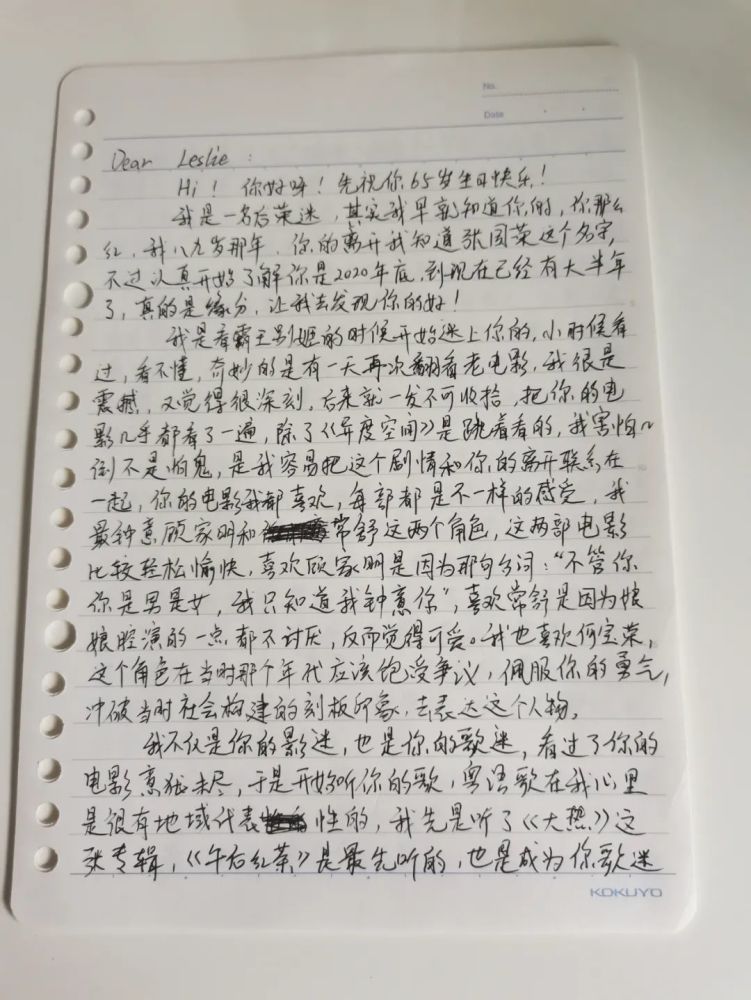 No.
Date
Dear Leslie:
Hi! 你好呀! 先祝你65岁生日快乐!
我是一名后荣迷, 其实我早就知道你的, 你那么
红, 我八九岁那年, 你的离开我知道张国荣这个名字,
不过认真开始了解你是2020年底, 到现在已经有大半年
了, 真的是缘分, 让我去发现你的好!
我是看霸王别姬的时候开始迷上你的, 小时候看
过, 看不懂, 奇妙的是有一天再次翻看老电影, 我很是
震撼, 又觉得很深刻, 后来就一发不可收拾, 把你的电
影几乎都看了一遍, 除了《异度空间》是跳着看的, 我害怕~
倒不是怕鬼, 是我容易把这个剧情和你的离开联系在
一起, 你的电影我都喜欢, 每部都是不一样的感受, 我
最钟意顾家明和常舒这两个角色, 这两部电影
比较轻松愉快, 喜欢顾家明是因为那句台词: “不管你
你是男是女, 我只知道我钟意你”, 喜欢常舒是因为娘
娘腔演的一点都不讨厌, 反而觉得可爱。我也喜欢何宝荣,
这个角色在当时那个年代应该饱受争议, 佩服你的勇气,
冲破当时社会构建的刻板印象, 去表达这个人物。
我不仅是你的影迷, 也是你的歌迷, 看过了你的
电影意犹未尽, 于是开始听你的歌, 粤语歌在我心里
是很有地域代表性的, 我先是听了《大热》这
张专辑, 《午后红茶》是最先听的, 也是成为你歌迷
KOKUYO